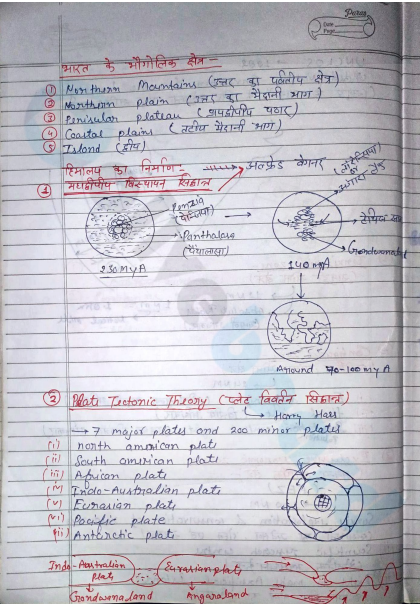 Paras
Date
Page
भारत के भौगोलिक क्षेत्र -
① Northern Mountains (उत्तर का पर्वतीय क्षेत्र)
② Northern plain (उत्तर का मैदानी भाग)
③ Penisular plateau (प्रायद्वीपीय पठार)
④ Coastal plains (तटीय मैदानी भाग)
⑤ Island (द्वीप)
हिमालय का निर्माण:- → अल्फ्रेड वेगनर
① महाद्वीपीय विस्थापन सिद्धान्त
Penzia
(पेन्जिया)
Panthalasa
(पैंथालासा)
250 MYA
टेथिस
Gondwanaland
140 mYA
Around 70-100 MYA
② Plat Tectonic Theory (प्लेट विवर्तन सिद्धान्त)
→ Harry Hess
→ 7 major plates and 200 minor plates
(i) north american plate
(ii) South american plate
(iii) African plate
(iv) Indo-Australian plate
(v) Eurasian plate
(vi) Pacific plate
(vii) Antarctic plate
Indo-Australian plate
Eurasian plate
Gondwanaland
Angaraland